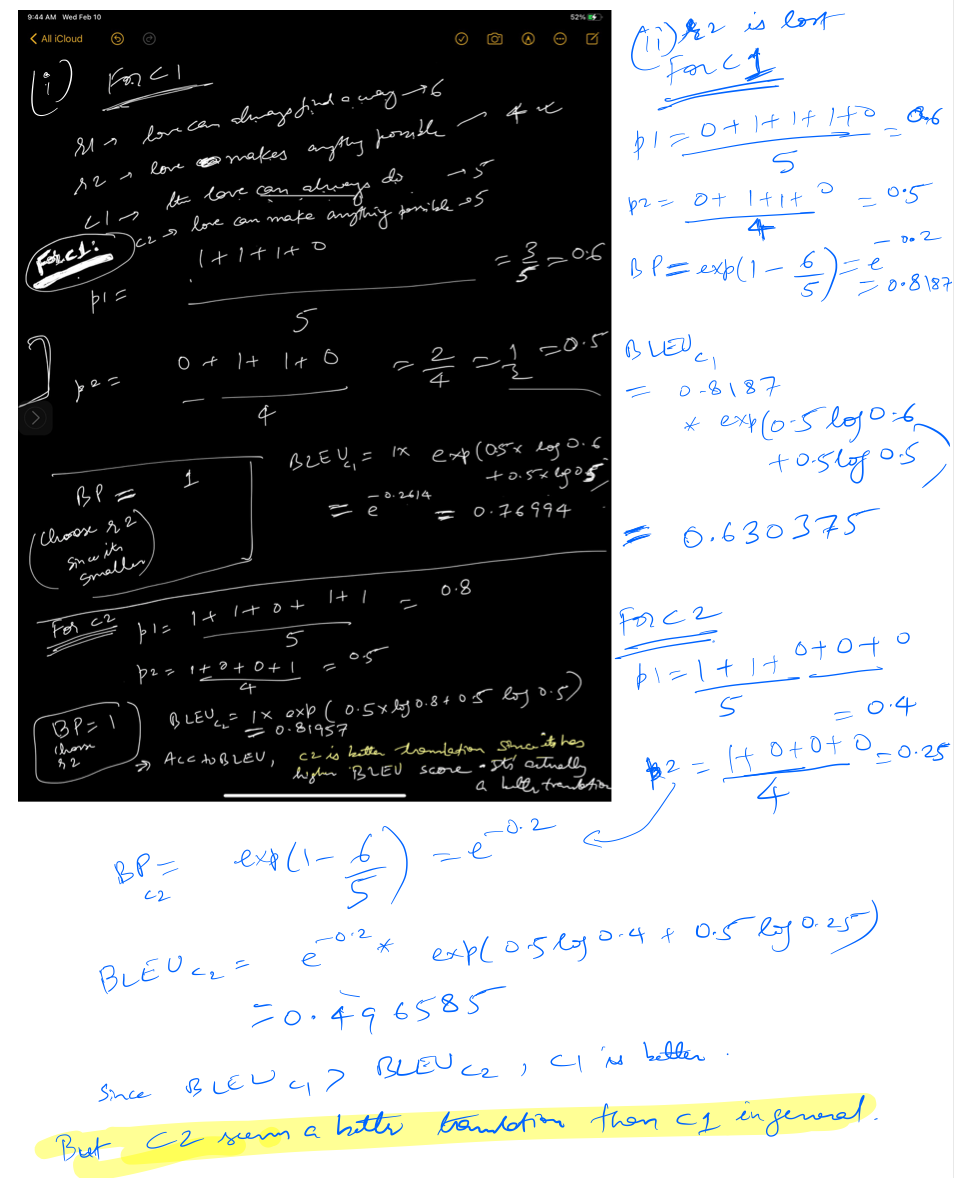 9:44 AM Wed Feb 10
52%
All iCloud
(i) For C1
r1 → love can always find a way → 6
r2 → love makes anything possible — 4
C1 → the love can always do → 5
C2 → love can make anything possible → 5
For C1:
p1 = 1 + 1 + 1 + 0 / 5 = 3/5 = 0.6
p2 = 0 + 1 + 1 + 0 / 4 = 2/4 = 1/2 = 0.5
BP = 1
(Choose r2
since its
smaller)
BLEU C1 = 1x exp(0.5x log 0.6
+ 0.5x log 0.5)
= e^-0.2614 = 0.76994
For C2 p1 = 1 + 1 + 0 + 1 + 1 / 5 = 0.8
p2 = 1 + 0 + 0 + 1 / 4 = 0.5
BP = 1
choose
r2
BLEU C2 = 1x exp(0.5x log 0.8 + 0.5 log 0.5)
= 0.81957
⇒ Acc to BLEU, C2 is better translation since its has
higher BLEU score. Its actually
a better translation
(ii) r2 is lost
For C1
p1 = 0 + 1 + 1 + 1 + 0 / 5 = 0.6
p2 = 0 + 1 + 1 + 0 / 4 = 0.5
BP = exp(1 - 6/5) = e^-0.2
= 0.8187
BLEU C1
= 0.8187
* exp(0.5 log 0.6
+ 0.5 log 0.5)
= 0.630375
For C2
p1 = 1 + 1 + 0 + 0 + 0 / 5
= 0.4
p2 = 1 + 0 + 0 + 0 / 4 = 0.25
BP C2 = exp(1 - 6/5) = e^-0.2
BLEU C2 = e^-0.2 * exp(0.5 log 0.4 + 0.5 log 0.25)
= 0.496585
Since BLEU C1 > BLEU C2, C1 is better.
But C2 seems a better translation than C1 in general.